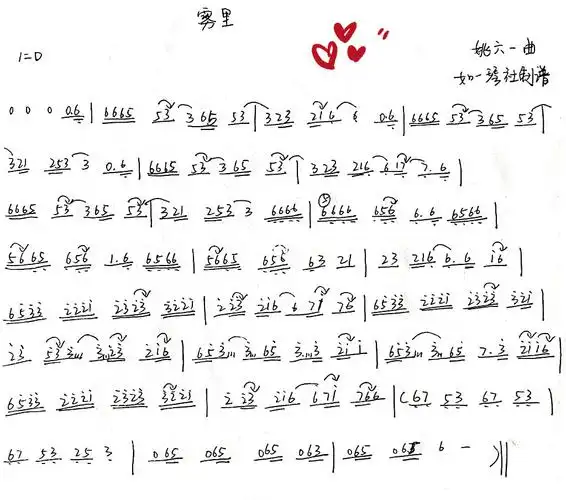 雾里
1=D
姚六一曲
如一琴社制谱
0 0 0 0.6 | 6665 53 365 53 | 323 216 6 0.6 | 6665 53 365 53 |
321 253 3 0.6 | 6665 53 365 53 | 323 216 617 7.6 |
6665 53 365 53 | 321 253 3 6666 | 6666 656 6.6 6566 |
5665 656 1.6 6566 | 5665 656 63 21 | 23 216 6.6 16 |
6533 2221 2323 3221 | 223 216 6 71 76 | 6533 2221 2323 321 |
23 533 3.23 216 | 653 3.65 3.3 21 1 | 653 3.65 7.3 2116 |
6533 2221 2323 3221 | 2 23 216 671 766 | (67 53 67 53 |
67 53 25 3 | 065 065 065 063 | 065 065 6 - )||